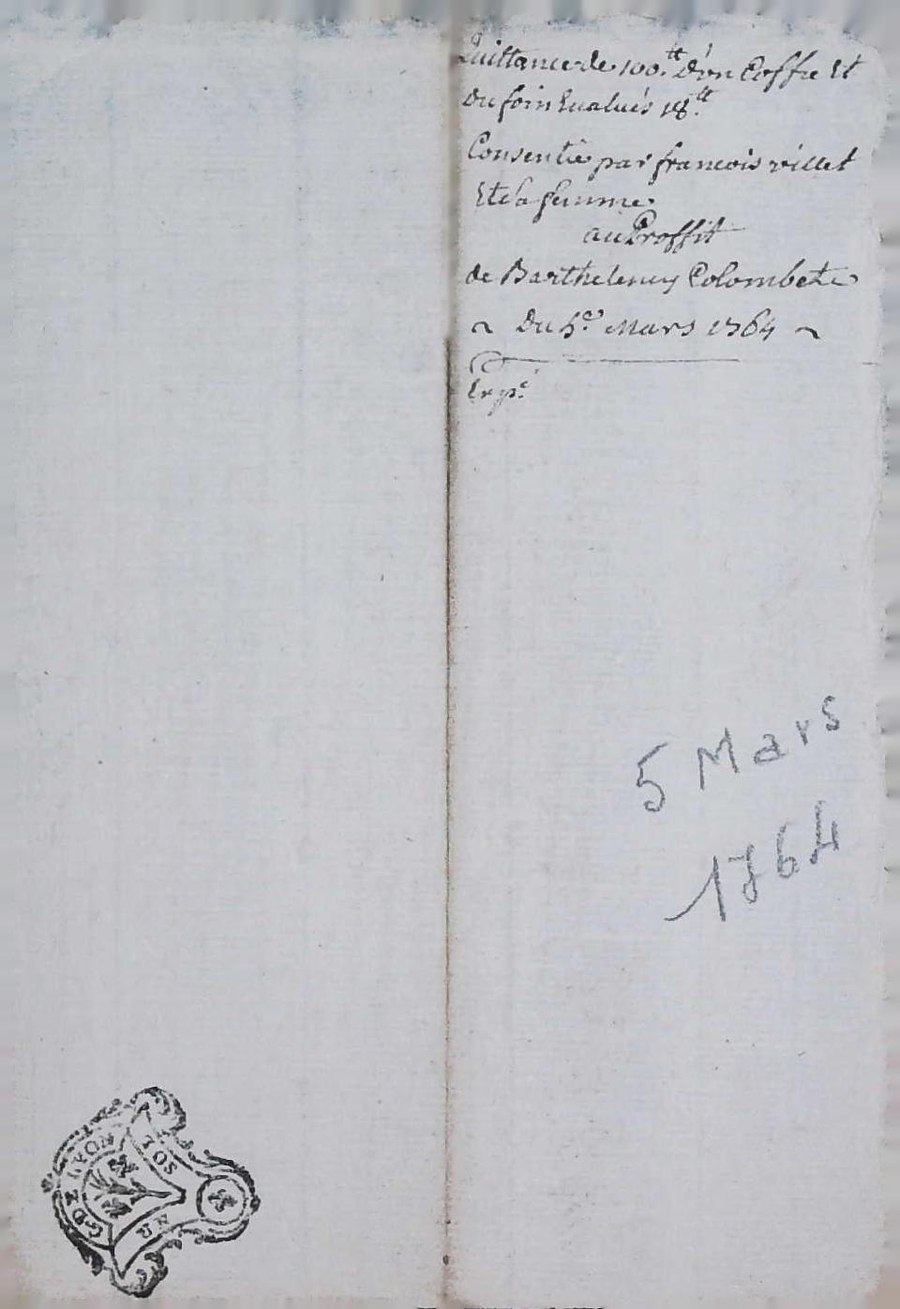 Quittance de 100.tt D'un Coffre Et
Du foin Evalués 18.tt
Consentie par francois villet
Et sa femme
au Proffit
de Barthelemy Colombet
~ Du 5.e Mars 1764 ~
Exp.e
5 Mars
1764
G DE LYON
SOL
UN